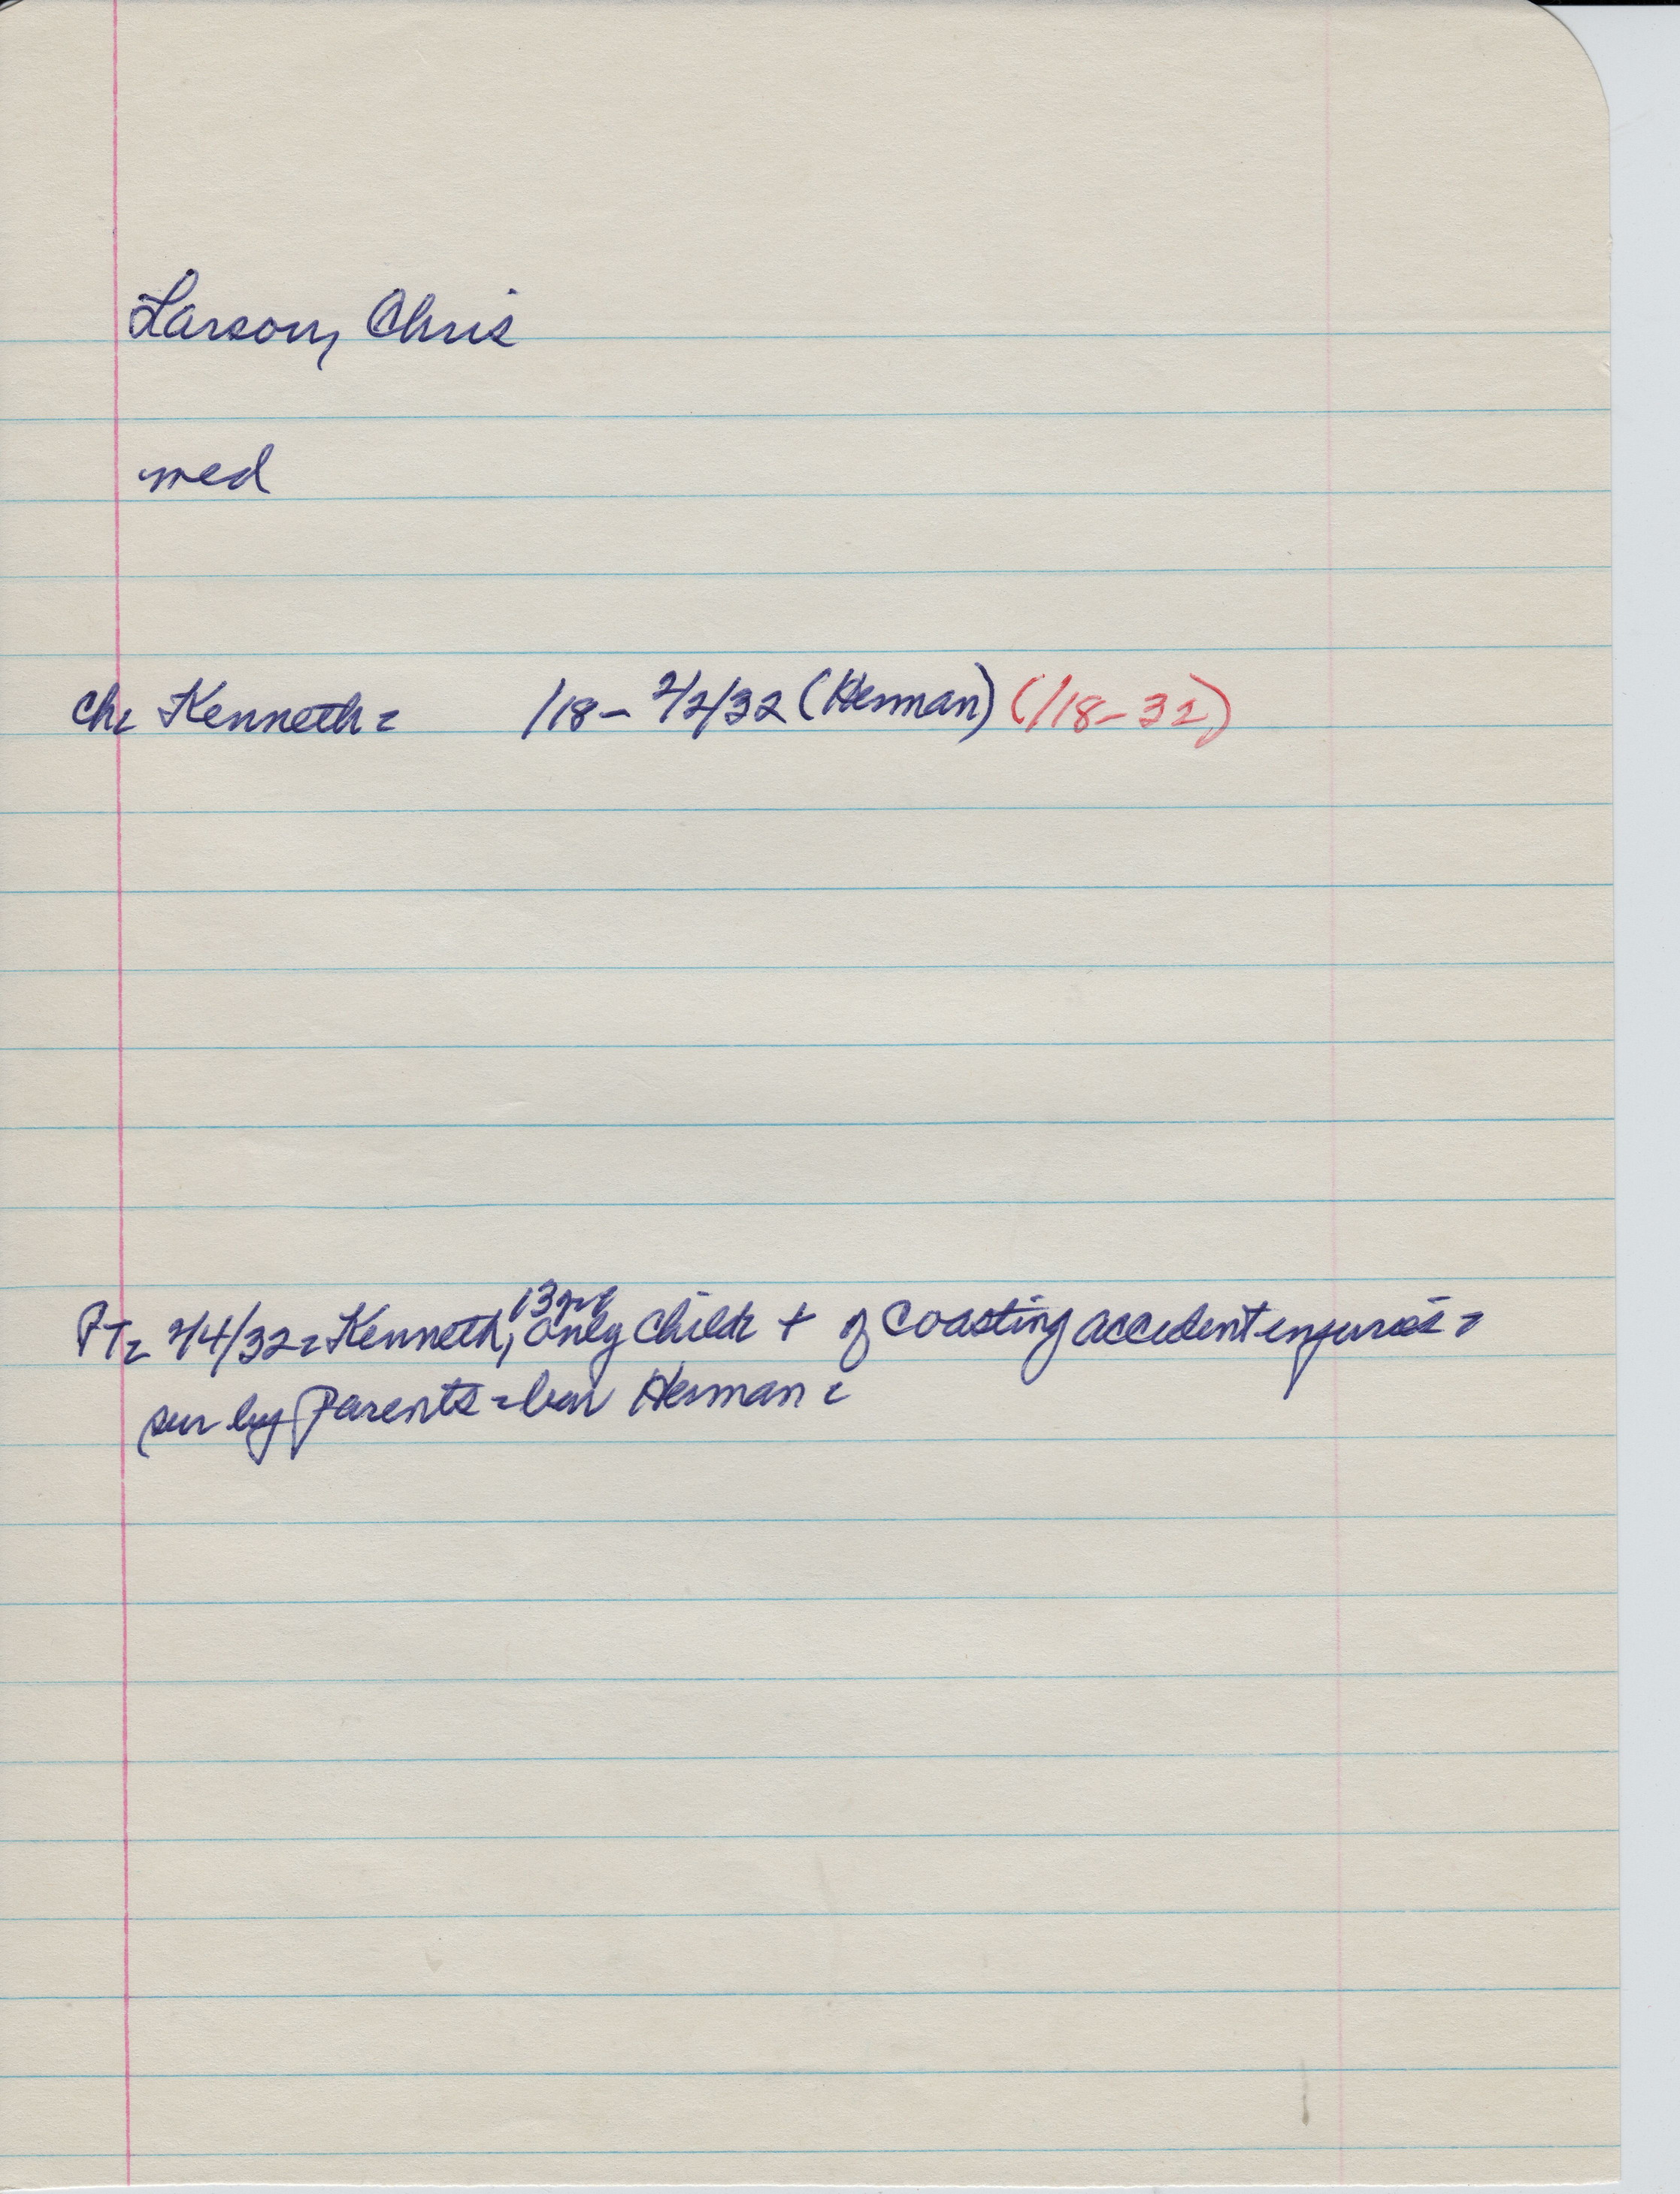 Larson, Chris
med
Ch= Kenneth= /18- 2/2/32 (Herman) (/18-32)
13yrs
PT= 2/4/32= Kenneth, only child= + of coasting accident enjuries=
sur by Parents= bur Herman=